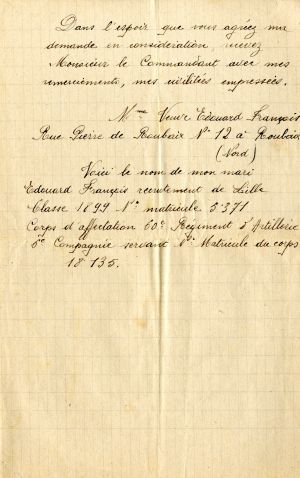 Dans l'espoir que vous agréez ma
demande en considération, recevez
Monsieur le Commandant avec mes
remerciements, mes civilitées empressées.
Mme Veuve Edouard François
Rue Pierre de Roubaix No 12 à Roubaix
(Nord)
Voici le nom de mon mari
Edouard François recrutement de Lille
Classe 1899 No matricule 5371
Corps d'affectation 60e Régiment d'Artillerie
5e Compagnie servant No Matricule du corps
18135.